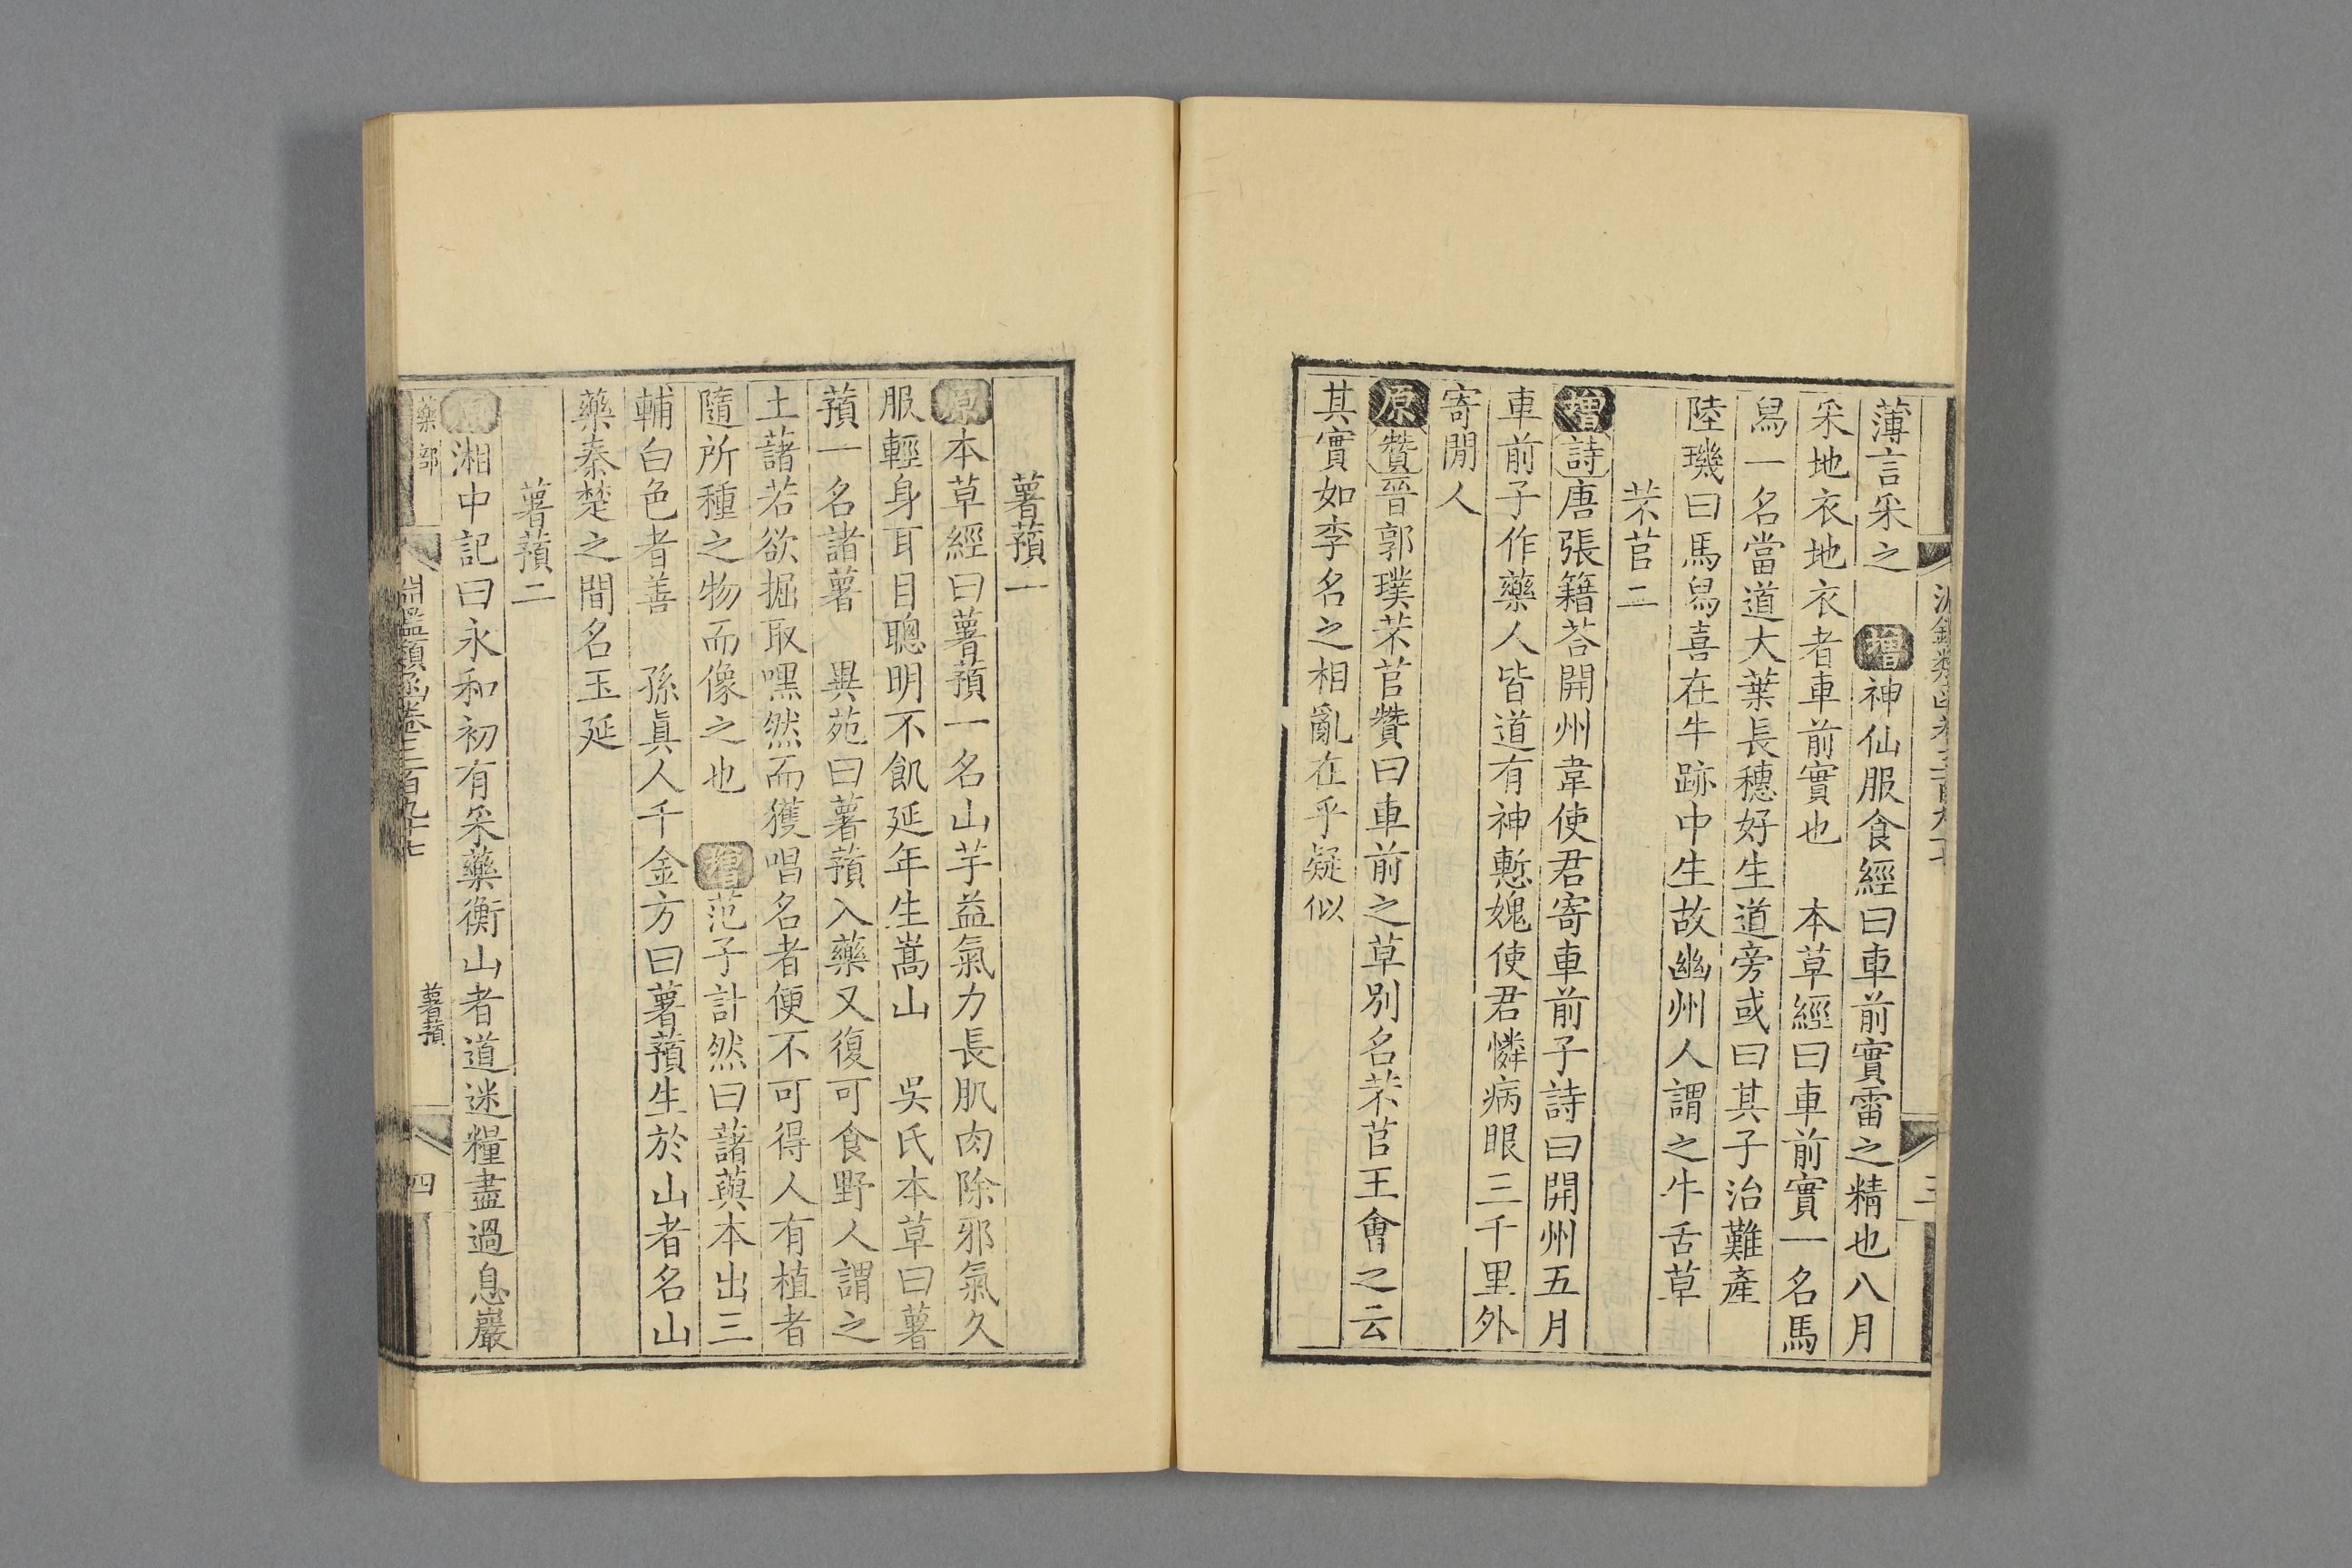 薄言采之　增神仙服食經曰車前實雷之精也八月
采地衣地衣者車前實也　本草經曰車前實一名馬
舃一名當道大葉長穗好生道旁或曰其子治難產
陸璣曰馬舃喜在牛跡中生故幽州人謂之牛舌草
芣苢二
增詩唐張籍荅開州韋使君寄車前子詩曰開州五月
車前子作藥人皆道有神慙媿使君憐病眼三千里外
寄閒人
原贊晉郭璞芣苢贊曰車前之草別名芣苢王會之云
其實如李名之相亂在乎疑似
薯蕷一
原本草經曰薯蕷一名山芋益氣力長肌肉除邪氣久
服輕身耳目聰明不飢延年生嵩山　吳氏本草曰薯
蕷一名諸薯　異苑曰薯蕷入藥又復可食野人謂之
土藷若欲掘取嘿然而獲唱名者便不可得人有植者
隨所種之物而像之也　增范子計然曰藷藇本出三
輔白色者善　孫眞人千金方曰薯蕷生於山者名山
藥秦楚之間名玉延
薯蕷二
原湘中記曰永和初有采藥衡山者道迷糧盡過息巖
藥部
淵鑑類函卷三百九十七
薯蕷
四